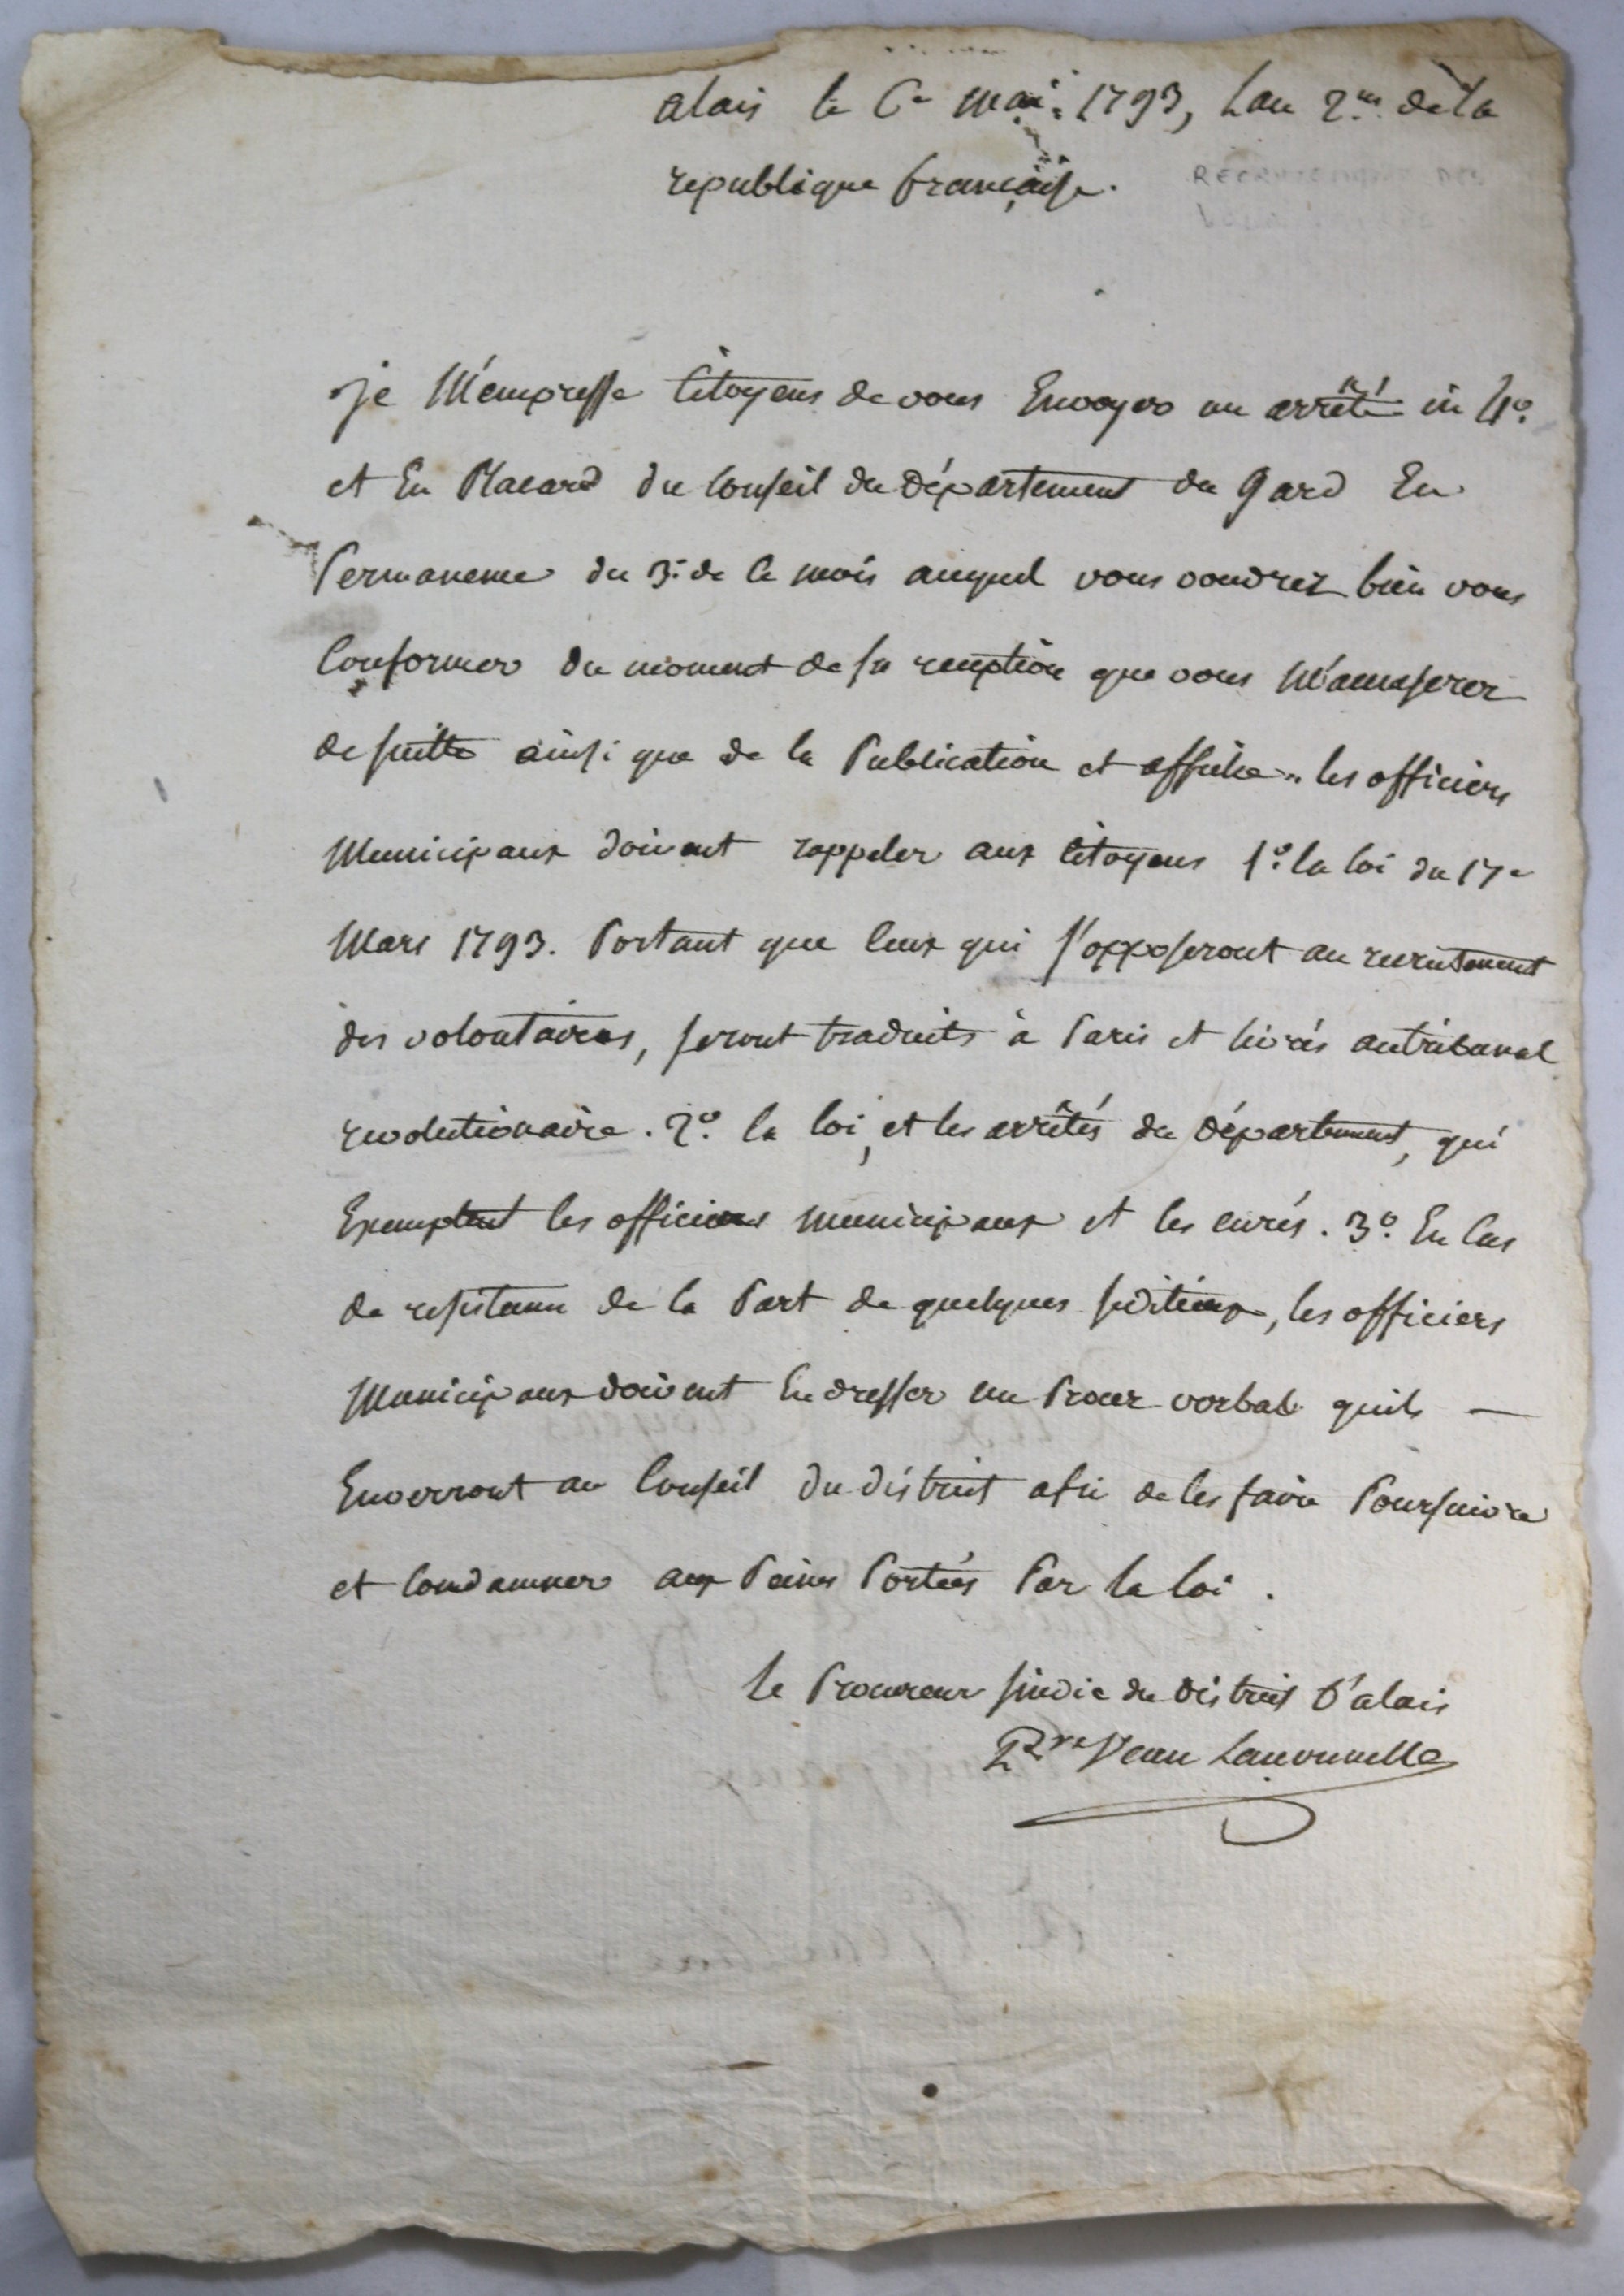 alais le 6e mai 1793, Lan 2me de la
republique française.
RECRUTEMENT DES
je M'empresse Citoyens de vous Envoyer un arrêté in 4o.
et En Placard du Conseil du département du Gard En
Permanence du 3e de ce mois auquel vous voudrez bien vous
Conformer du moment de sa reception que vous M'accuserez
de suitte ainsi que de la Publication et affiche .. les officiers
Municipaux doivent rappeler aux Citoyens 1o. la loi du 17e
Mars 1793. Portant que Ceux qui s'opposeront au recrutement
des volontaires, seront traduits à Paris et livrés au tribunal
revolutionaire. 2o. la loi, et les arrêtés du département, qui
Exemptent les officiers municipaux et les curés. 3o. En Cas
de resistance de la Part de quelques séditieux, les officiers
Municipaux doivent En dresser un Procez verbal quils —
Enverront au Conseil du district afin de les faire Poursuivre
et Condamner aux Peines Portées Par la loi.
le Procureur sindic du district d'alais
Jean